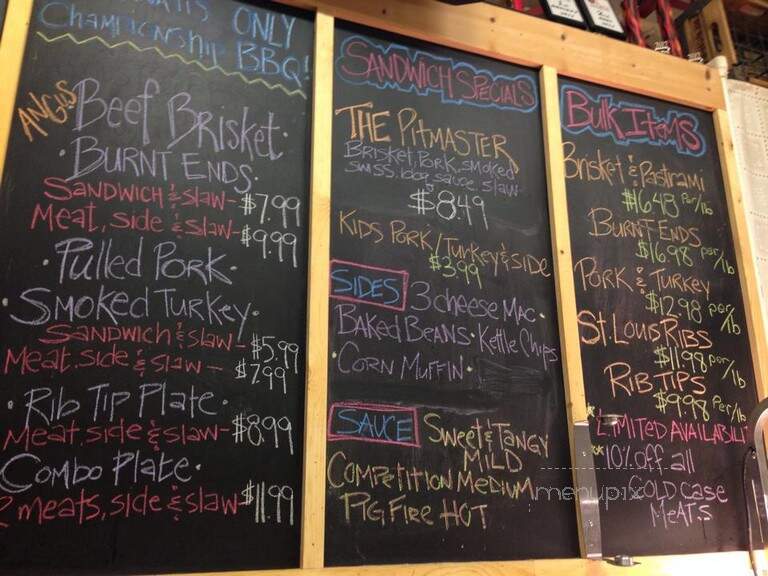 ONLY
Championship BBQ!
ANGUS
Beef Brisket.
.BURNT ENDS.
SANDWICH & SLAW- $7.99
Meat, side & slaw- $9.99
.Pulled Pork.
.Smoked Turkey.
SANDWICH & SLAW- $5.99
Meat. side & slaw- $7.99
.Rib Tip Plate.
Meat, side & slaw- $8.99
Combo Plate.
2 meats, side & slaw $11.99
SANDWICH SPECIALS
THE PITMASTER
BRISKET, PORK, SMOKED
SWISS, BBQ SAUCE, SLAW
$8.49
KIDS PORK/TURKEY & SIDE
$3.99
SIDES 3 cheese Mac.
BAKED BEANS. Kettle Chips
.CORN MUFFIN.
SAUCE Sweet & Tangy
MILD
COMPETITION MEDIUM
PIG FIRE HOT
BULK ITEMS
Brisket & Pastrami
$16.48 per/lb
BURNT ENDS
$16.98 per/lb
PORK & TURKEY
$12.98 per/lb
ST. LOUIS RIBS
$11.98 per/lb
RIB TIPS
$9.98 Per/lb
LIMITED AVAILABILIT
10% off all
COLD CASE
MEATS
menupix